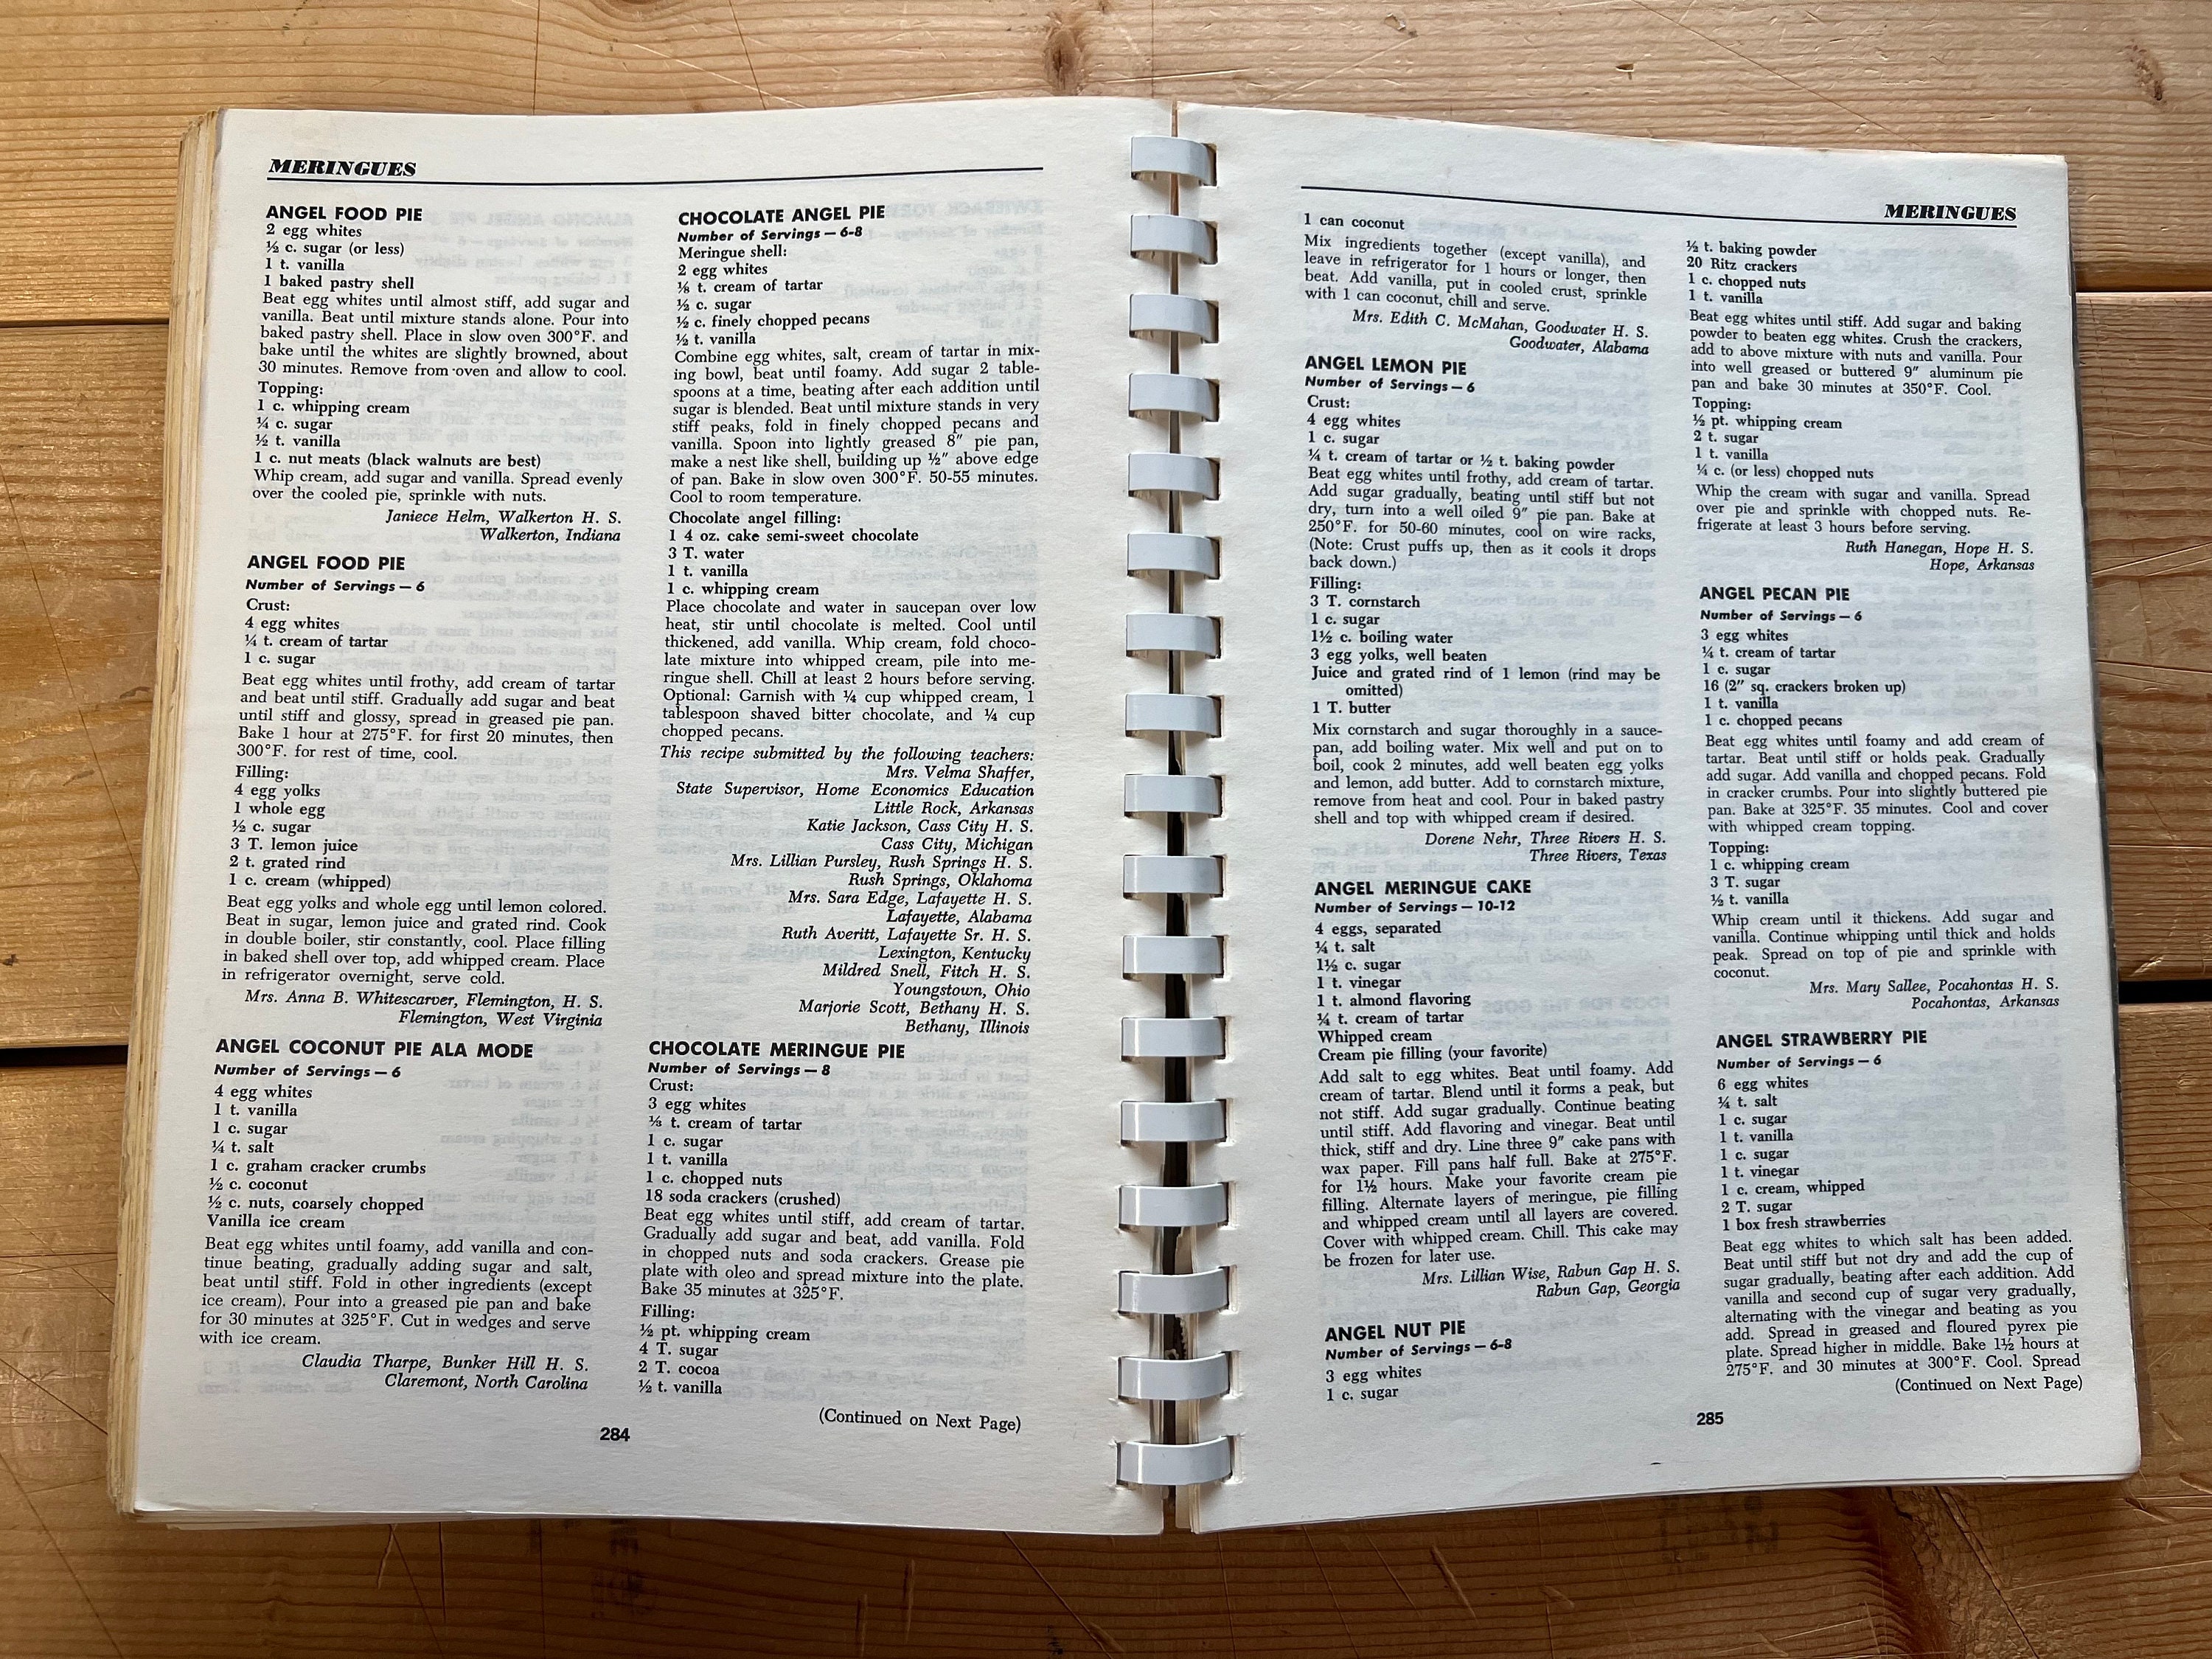 MERINGUES
ANGEL FOOD PIE
2 egg whites
½ c. sugar (or less)
1 t. vanilla
1 baked pastry shell
Beat egg whites until almost stiff, add sugar and
vanilla. Beat until mixture stands alone. Pour into
baked pastry shell. Place in slow oven 300°F. and
bake until the whites are slightly browned, about
30 minutes. Remove from oven and allow to cool.
Topping:
1 c. whipping cream
¼ c. sugar
½ t. vanilla
1 c. nut meats (black walnuts are best)
Whip cream, add sugar and vanilla. Spread evenly
over the cooled pie, sprinkle with nuts.
Janiece Helm, Walkerton H. S.
Walkerton, Indiana
ANGEL FOOD PIE
Number of Servings — 6
Crust:
4 egg whites
¼ t. cream of tartar
1 c. sugar
Beat egg whites until frothy, add cream of tartar
and beat until stiff. Gradually add sugar and beat
until stiff and glossy, spread in greased pie pan.
Bake 1 hour at 275°F. for first 20 minutes, then
300°F. for rest of time, cool.
Filling:
4 egg yolks
1 whole egg
½ c. sugar
3 T. lemon juice
2 t. grated rind
1 c. cream (whipped)
Beat egg yolks and whole egg until lemon colored.
Beat in sugar, lemon juice and grated rind. Cook
in double boiler, stir constantly, cool. Place filling
in baked shell over top, add whipped cream. Place
in refrigerator overnight, serve cold.
Mrs. Anna B. Whitescarver, Flemington, H. S.
Flemington, West Virginia
ANGEL COCONUT PIE ALA MODE
Number of Servings — 6
4 egg whites
1 t. vanilla
1 c. sugar
¼ t. salt
1 c. graham cracker crumbs
½ c. coconut
½ c. nuts, coarsely chopped
Vanilla ice cream
Beat egg whites until foamy, add vanilla and con-
tinue beating, gradually adding sugar and salt,
beat until stiff. Fold in other ingredients (except
ice cream). Pour into a greased pie pan and bake
for 30 minutes at 325°F. Cut in wedges and serve
with ice cream.
Claudia Tharpe, Bunker Hill H. S.
Claremont, North Carolina
CHOCOLATE ANGEL PIE
Number of Servings — 6-8
Meringue shell:
2 egg whites
⅛ t. cream of tartar
½ c. sugar
½ c. finely chopped pecans
½ t. vanilla
Combine egg whites, salt, cream of tartar in mix-
ing bowl, beat until foamy. Add sugar 2 table-
spoons at a time, beating after each addition until
sugar is blended. Beat until mixture stands in very
stiff peaks, fold in finely chopped pecans and
vanilla. Spoon into lightly greased 8" pie pan,
make a nest like shell, building up ½" above edge
of pan. Bake in slow oven 300°F. 50-55 minutes.
Cool to room temperature.
Chocolate angel filling:
1 4 oz. cake semi-sweet chocolate
3 T. water
1 t. vanilla
1 c. whipping cream
Place chocolate and water in saucepan over low
heat, stir until chocolate is melted. Cool until
thickened, add vanilla. Whip cream, fold choco-
late mixture into whipped cream, pile into me-
ringue shell. Chill at least 2 hours before serving.
Optional: Garnish with ¼ cup whipped cream, 1
tablespoon shaved bitter chocolate, and ¼ cup
chopped pecans.
This recipe submitted by the following teachers:
Mrs. Velma Shaffer,
State Supervisor, Home Economics Education
Little Rock, Arkansas
Katie Jackson, Cass City H. S.
Cass City, Michigan
Mrs. Lillian Pursley, Rush Springs H. S.
Rush Springs, Oklahoma
Mrs. Sara Edge, Lafayette H. S.
Lafayette, Alabama
Ruth Averitt, Lafayette Sr. H. S.
Lexington, Kentucky
Mildred Snell, Fitch H. S.
Youngstown, Ohio
Marjorie Scott, Bethany H. S.
Bethany, Illinois
CHOCOLATE MERINGUE PIE
Number of Servings — 8
Crust:
3 egg whites
⅓ t. cream of tartar
1 c. sugar
1 t. vanilla
1 c. chopped nuts
18 soda crackers (crushed)
Beat egg whites until stiff, add cream of tartar.
Gradually add sugar and beat, add vanilla. Fold
in chopped nuts and soda crackers. Grease pie
plate with oleo and spread mixture into the plate.
Bake 35 minutes at 325°F.
Filling:
½ pt. whipping cream
4 T. sugar
2 T. cocoa
½ t. vanilla
(Continued on Next Page)
284
MERINGUES
1 can coconut
Mix ingredients together (except vanilla), and
leave in refrigerator for 1 hours or longer, then
beat. Add vanilla, put in cooled crust, sprinkle
with 1 can coconut, chill and serve.
Mrs. Edith C. McMahan, Goodwater H. S.
Goodwater, Alabama
ANGEL LEMON PIE
Number of Servings — 6
Crust:
4 egg whites
1 c. sugar
¼ t. cream of tartar or ½ t. baking powder
Beat egg whites until frothy, add cream of tartar.
Add sugar gradually, beating until stiff but not
dry, turn into a well oiled 9" pie pan. Bake at
250°F. for 50-60 minutes, cool on wire racks,
(Note: Crust puffs up, then as it cools it drops
back down.)
Filling:
3 T. cornstarch
1 c. sugar
1½ c. boiling water
3 egg yolks, well beaten
Juice and grated rind of 1 lemon (rind may be
omitted)
1 T. butter
Mix cornstarch and sugar thoroughly in a sauce-
pan, add boiling water. Mix well and put on to
boil, cook 2 minutes, add well beaten egg yolks
and lemon, add butter. Add to cornstarch mixture,
remove from heat and cool. Pour in baked pastry
shell and top with whipped cream if desired.
Dorene Nehr, Three Rivers H. S.
Three Rivers, Texas
ANGEL MERINGUE CAKE
Number of Servings — 10-12
4 eggs, separated
¼ t. salt
1½ c. sugar
1 t. vinegar
1 t. almond flavoring
¼ t. cream of tartar
Whipped cream
Cream pie filling (your favorite)
Add salt to egg whites. Beat until foamy. Add
cream of tartar. Blend until it forms a peak, but
not stiff. Add sugar gradually. Continue beating
until stiff. Add flavoring and vinegar. Beat until
thick, stiff and dry. Line three 9" cake pans with
wax paper. Fill pans half full. Bake at 275°F.
for 1½ hours. Make your favorite cream pie
filling. Alternate layers of meringue, pie filling
and whipped cream until all layers are covered.
Cover with whipped cream. Chill. This cake may
be frozen for later use.
Mrs. Lillian Wise, Rabun Gap H. S.
Rabun Gap, Georgia
ANGEL NUT PIE
Number of Servings — 6-8
3 egg whites
1 c. sugar
½ t. baking powder
20 Ritz crackers
1 c. chopped nuts
1 t. vanilla
Beat egg whites until stiff. Add sugar and baking
powder to beaten egg whites. Crush the crackers,
add to above mixture with nuts and vanilla. Pour
into well greased or buttered 9" aluminum pie
pan and bake 30 minutes at 350°F. Cool.
Topping:
½ pt. whipping cream
2 t. sugar
1 t. vanilla
¼ c. (or less) chopped nuts
Whip the cream with sugar and vanilla. Spread
over pie and sprinkle with chopped nuts. Re-
frigerate at least 3 hours before serving.
Ruth Hanegan, Hope H. S.
Hope, Arkansas
ANGEL PECAN PIE
Number of Servings — 6
3 egg whites
¼ t. cream of tartar
1 c. sugar
16 (2" sq. crackers broken up)
1 t. vanilla
1 c. chopped pecans
Beat egg whites until foamy and add cream of
tartar. Beat until stiff or holds peak. Gradually
add sugar. Add vanilla and chopped pecans. Fold
in cracker crumbs. Pour into slightly buttered pie
pan. Bake at 325°F. 35 minutes. Cool and cover
with whipped cream topping.
Topping:
1 c. whipping cream
3 T. sugar
½ t. vanilla
Whip cream until it thickens. Add sugar and
vanilla. Continue whipping until thick and holds
peak. Spread on top of pie and sprinkle with
coconut.
Mrs. Mary Sallee, Pocahontas H. S.
Pocahontas, Arkansas
ANGEL STRAWBERRY PIE
Number of Servings — 6
6 egg whites
¼ t. salt
1 c. sugar
1 t. vanilla
1 c. sugar
1 t. vinegar
1 c. cream, whipped
2 T. sugar
1 box fresh strawberries
Beat egg whites to which salt has been added.
Beat until stiff but not dry and add the cup of
sugar gradually, beating after each addition. Add
vanilla and second cup of sugar very gradually,
alternating with the vinegar and beating as you
add. Spread in greased and floured pyrex pie
plate. Spread higher in middle. Bake 1½ hours at
275°F. and 30 minutes at 300°F. Cool. Spread
(Continued on Next Page)
285